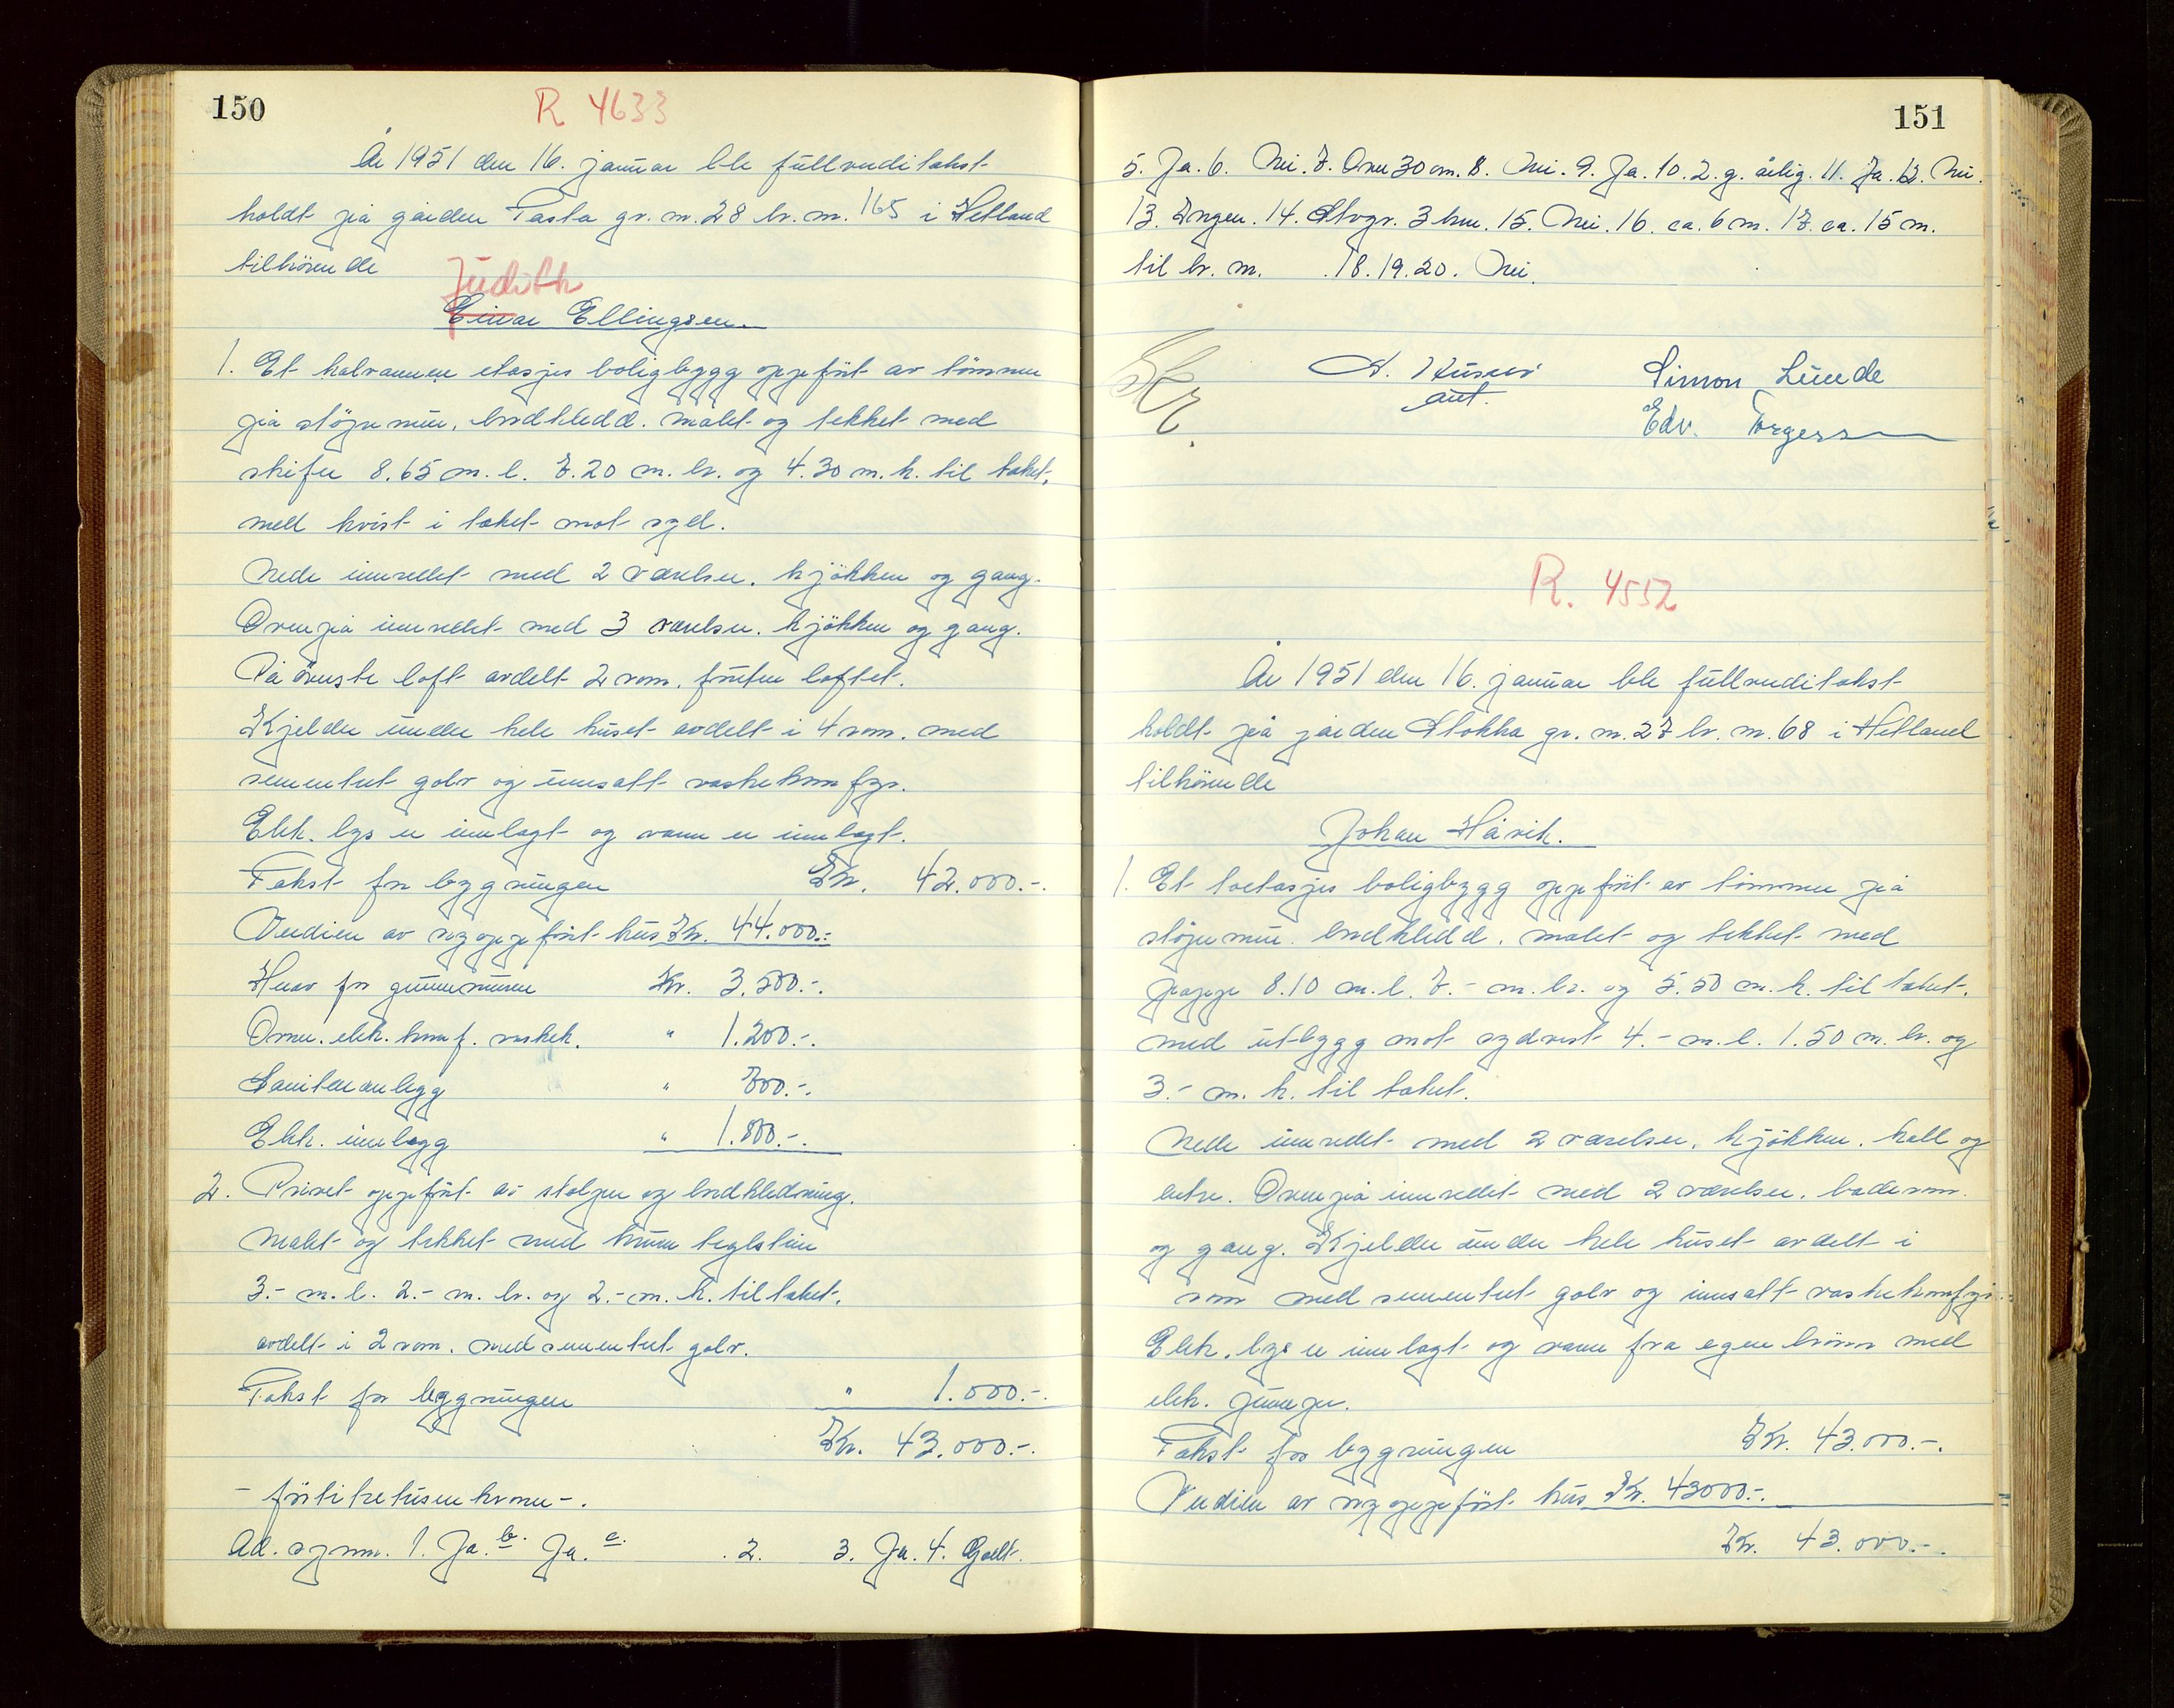 150
R 4633
År 1951 den 16. januar ble fullverditakst
holdt på gården Tasta gr. nr. 28 br. nr. 165 i Hetland
tilhörende
Judith
Einar Ellingsen.
1. Et halvannen etasjes boligbygg oppfört av tömmer
på stöpemur, bordkledd. malet og tekket med
skifer 8.65 m. l. 7.20 m. br. og 4.30 m. h. til taket.
med kvist i taket mot syd.
Nede innredet med 2 værelser. kjökken og gang.
Ovenpå innredet med 3 værelser. kjökken og gang.
På överste loft avdelt 2 rom. foruten loftet.
Kjelder under hele huset avdelt i 4 rom. med
sementert golv og innsatt vaskekomfyr.
Elek. lys er innlagt og vann er innlagt.
Takst for bygningen Kr. 42.000.-.
Verdien av nyoppfört hus Kr. 44.000.-
Herav for grunnmuren Kr. 3.500.-.
Ovner. elek. komf. vaskek. " 1.200.-.
Sanitæranlegg " 700.-.
Elek. innlegg " 1.800.-.
2. Privet oppfört av stolper og bordkledning.
malet og tekket med krum teglstein
3.- m. l. 2.- m. br. og 2.- m. h. til taket.
avdelt i 2 rom. med sementert golv.
Takst for bygningen " 1.000.-.
Kr. 43.000.-.
- förtitretusenkroner -.
Ad. spm. 1. Ja. b. Ja. c. . 2. 3. Ja. 4. Godt.
151
5. Ja. 6. Nei. 7. Over 30 cm. 8. Nei. 9. Ja. 10. 2. g. årlig. 11. Ja. 12. Nei.
13. Ingen. 14. Stvgr. 3 km. 15. Nei. 16. ca. 6 m. 17. ca. 15 m.
til br. nr. . 18. 19. 20. Nei.
Simon Lunde
Edv. Torgersen
R. 4552
År 1951 den 16. januar ble fullverditakst
holdt på gården Stokka gr. nr. 27 br. nr. 68 i Hetland
tilhörende
Johan Håvik.
1. Et toetasjes boligbygg oppfört av tömmer på
stöpemur. bordkledd. malet og tekket med
papp 8.10 m. l. 7.- m. br. og 5.50 m. h. til taket.
med utbygg mot sydvest 4.- m. l. 1.50 m. br. og
3.- m. h. til taket.
Nede innredet med 2 værelser. kjökken. hall og
entre. Ovenpå innredet med 2 værelser. baderom.
og gang. Kjelder under hele huset avdelt i
rom med sementert golv og innsatt vaskekomfyr.
Elek. lys er innlagt og vann fra egen brönn med
elek. pumpe.
Takst for bygningen Kr. 43.000.-.
Verdien av nyoppfört hus Kr. 43000.-.
Kr. 43.000.-.